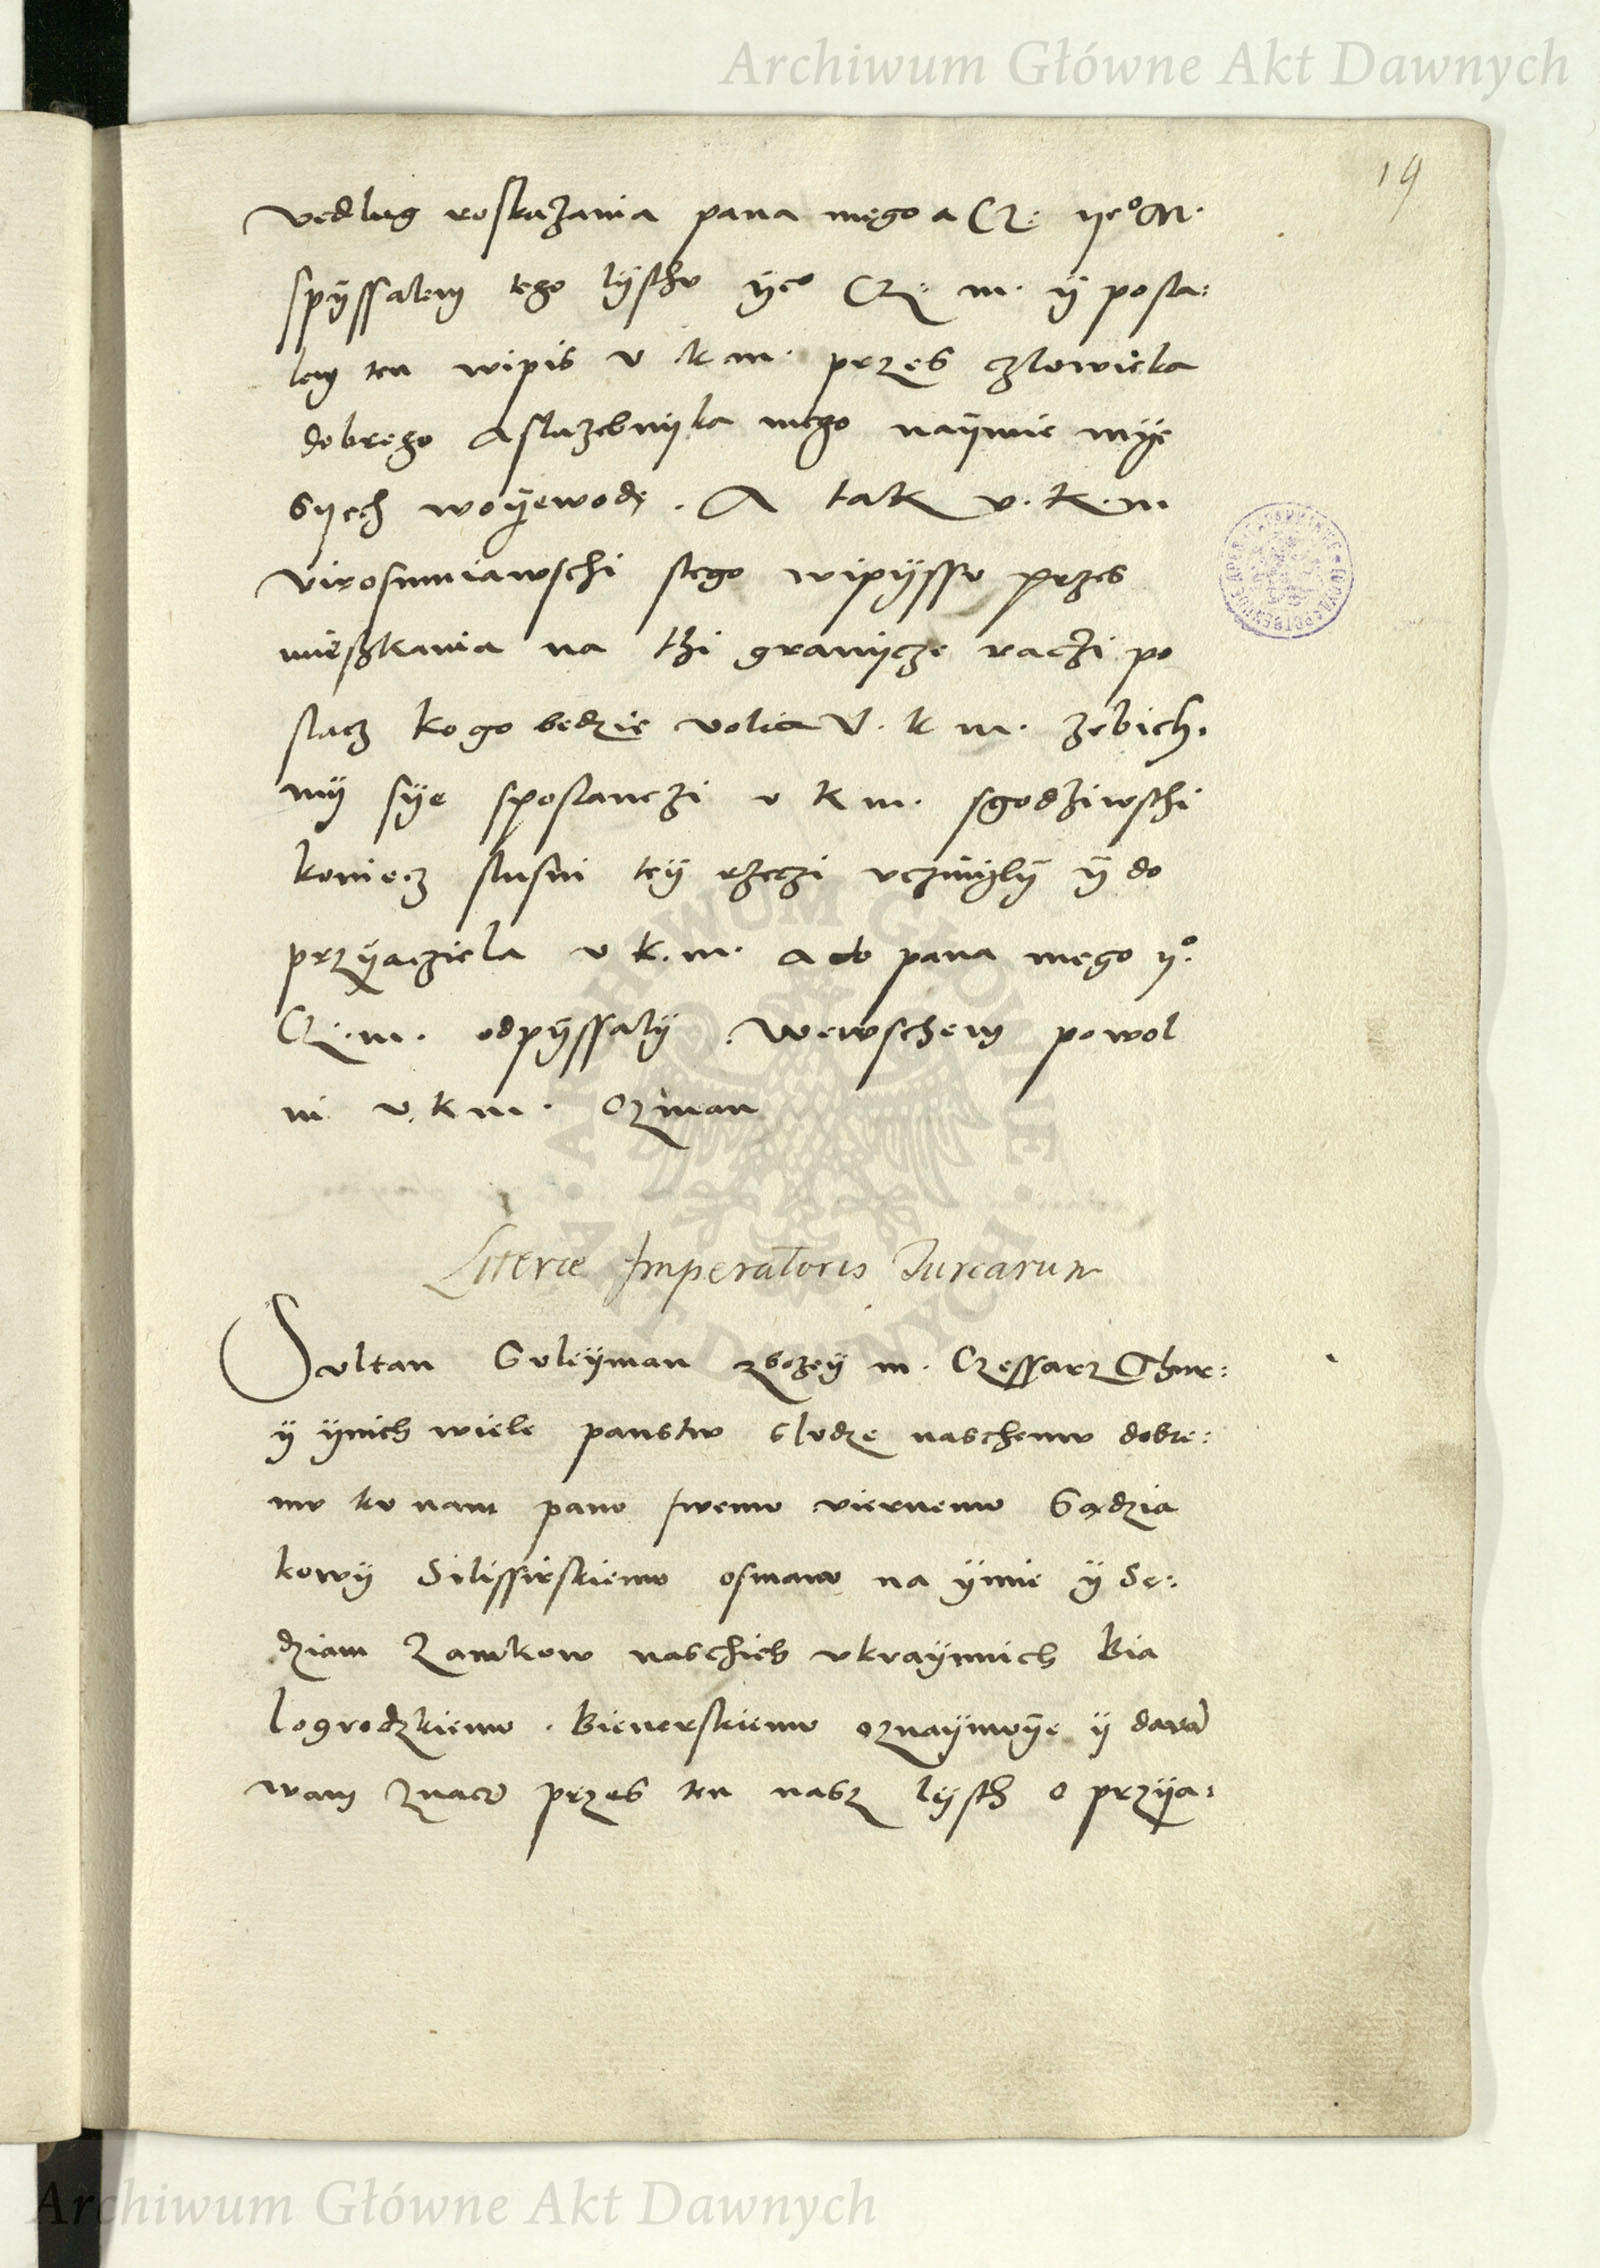 Archiwum Główne Akt Dawnych
19
vedlug roskazania pana mego a Cz: yeo M.
spÿssalem tego lÿsthu ÿeo Cz: m. ÿ posla:
lem ten wipis v k m. przes czlowieka
dobrego a sluzebnÿka mego naÿmie mÿe
syech woÿewodę. A tak v. k. m
virosumiawschi stego wipÿssu przes
mieszkania na thi granÿcze raczi po
slacz kogo bedzie volia V. k m. zebich.
mÿ sÿe sposlanczi v k m. sgodziwschi
koniecz slusni teÿ rzeczi vczinÿlÿ ÿ do
przÿacziela v k. m. a do pana mego yo.
Cz: m. odpÿssalÿ. Wewschem powol
ni v. k m. Ozman
Literae Imperatoris Turcarum
Sultan Suleÿman zbozeÿ m. Czessarz Thur:
ÿ ÿnich wiele panstw sludze naschemu dobre:
mu ku nam panu swemu viernemu Sądzia
kowÿ Silissirskiemu osmanu na ÿmie ÿ Sę:
dziam Zamkow naschich vkraÿnnich Bia
logrodzkiemu. Bienerskiemu oznaÿmuÿe ÿ dawa
wam znacz przes ten nasz lÿsth o przÿa:
Archiwum Główne Akt Dawnych